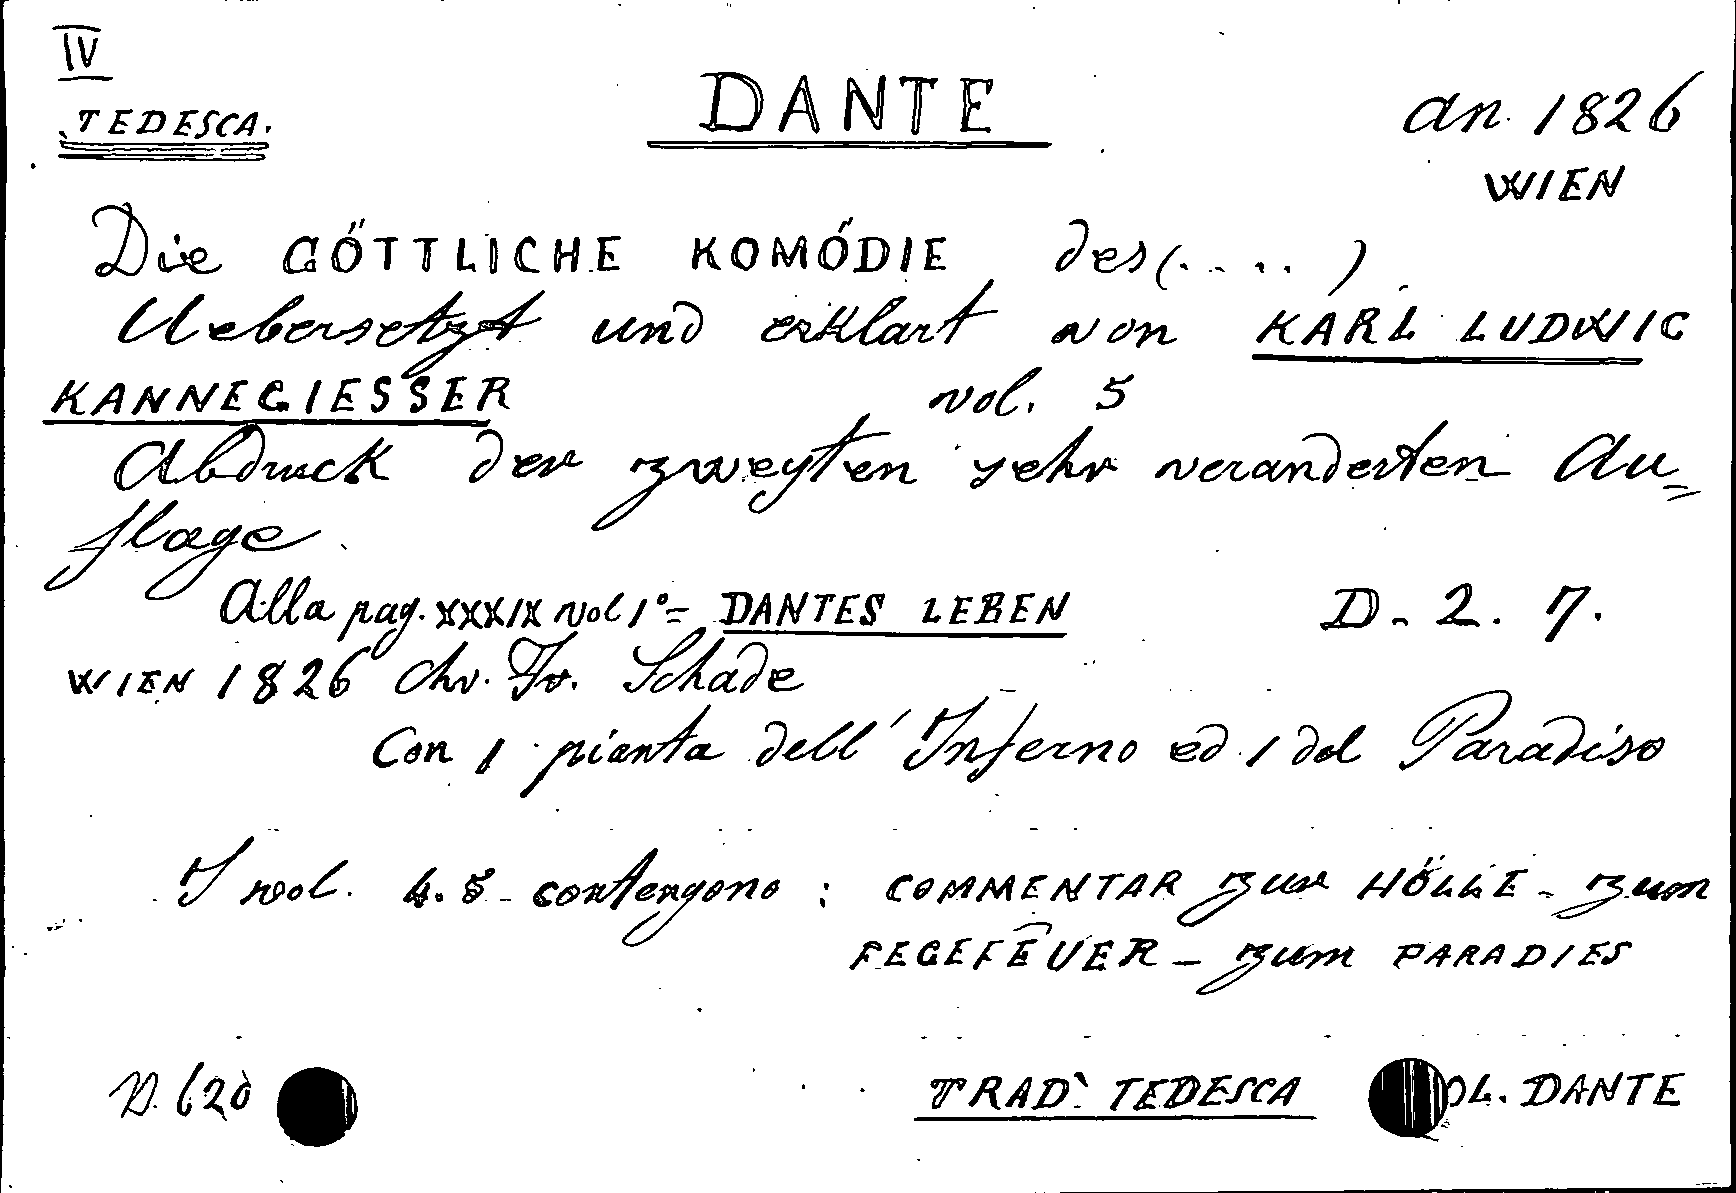 IV
TEDESCA.
DANTE
an. 1826
WIEN
Die GÖTTLICHE KOMÖDIE des (.....)
Uebersetzt und erklart von KARL LUDWIG
KANNEGIESSER vol. 5
Abdruck der zweyten sehr veranderten Au=
flage
Alla pag. XXXIX vol 1°= DANTES LEBEN D. 2. 7.
WIEN 1826 Chr. Fr. Schade
Con 1 pianta dell' Inferno ed 1 del Paradiso
I vol. 4.5 contengono : COMMENTAR zur HÖLLE - zum
FEGEFEUER - zum PARADIES
TRAD. TEDESCA OL. DANTE